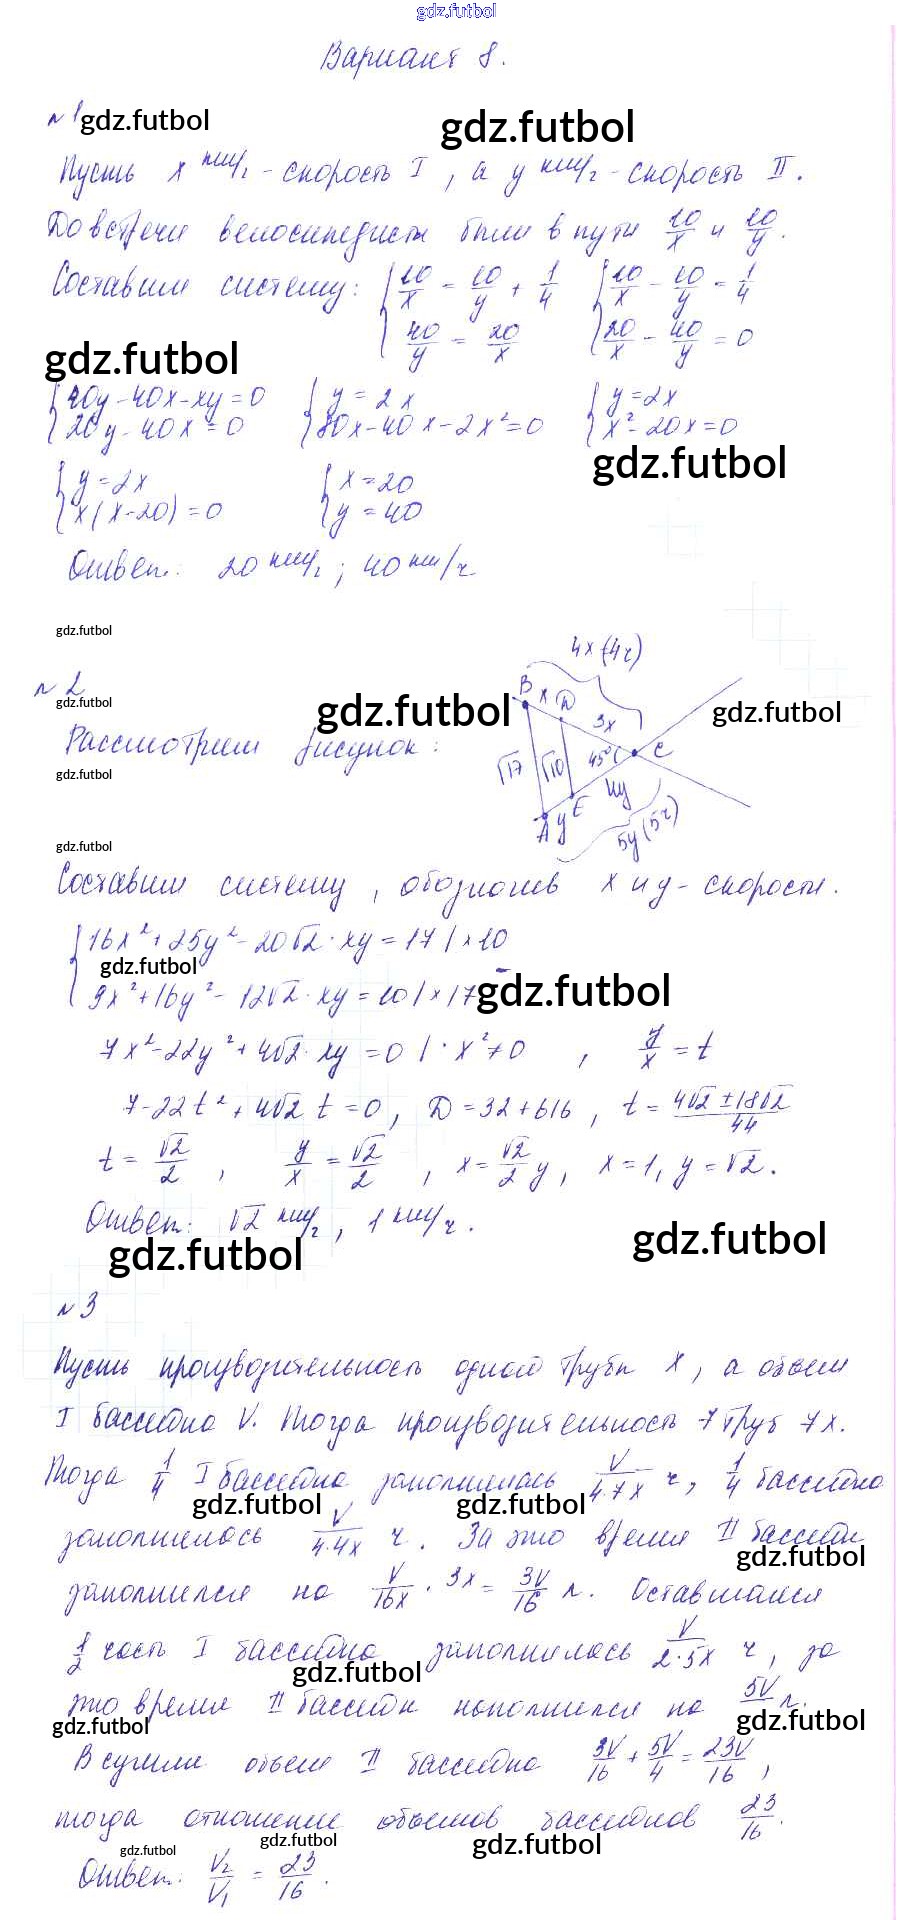 gdz.futbol
Вариант 8.
№1 gdz.futbol gdz.futbol
Пусть x км/ч - скорость I, а y км/ч - скорость II.
До встречи велосипедисты были в пути 20/x и 20/y.
Составим систему: { 20/x = 20/y + 1/4 { 20/x - 20/y = 1/4
40/y = 20/x 20/x - 40/y = 0
gdz.futbol
{ 20y - 40x - xy = 0 { y = 2x { y = 2x
20y - 40x = 0 80x - 40x - 2x² = 0 x² - 20x = 0
gdz.futbol
{ y = 2x { x = 20
x(x - 20) = 0 y = 40
Ответ: 20 км/ч; 40 км/ч
gdz.futbol
4x (4ч)
№2
B x D
gdz.futbol gdz.futbol gdz.futbol
3x
Рассмотрим рисунок:
√17 √10 45° C
gdz.futbol
4y
A y E
5y (5ч)
gdz.futbol
Составим систему, обозначив x и y - скорости.
{ 16x² + 25y² - 20√2 · xy = 17 | × 10
gdz.futbol gdz.futbol
9x² + 16y² - 12√2 · xy = 10 | × 17
7x² - 22y² + 4√2 · xy = 0 | · x² ≠ 0, y/x = t
7 - 22t² + 4√2 t = 0, D = 32 + 616, t = 4√2 ± 18√2/44
t = √2/2, y/x = √2/2, x = √2/2 y, x = 1, y = √2.
Ответ: √2 км/ч, 1 км/ч.
gdz.futbol gdz.futbol
№3
Пусть производительность одной трубы x, а объем
I бассейна V. Тогда производительность 7 труб 7x.
Тогда 1/4 I бассейна заполнилась V/4·7x ч, 1/4 бассейна
gdz.futbol gdz.futbol
заполнилась V/4·4x ч. За это время II бассейн
gdz.futbol
заполнился на V/16x · 3x = 3V/16 л. Оставшаяся
1/2 часть I бассейна заполнилась V/2·5x ч, за
gdz.futbol
это время II бассейн наполнился на 5V л.
gdz.futbol gdz.futbol
В сумме объем II бассейна 3V/16 + 5V/4 = 23V/16,
тогда отношение объемов бассейнов 23/16.
gdz.futbol gdz.futbol gdz.futbol
Ответ: V₂/V₁ = 23/16.